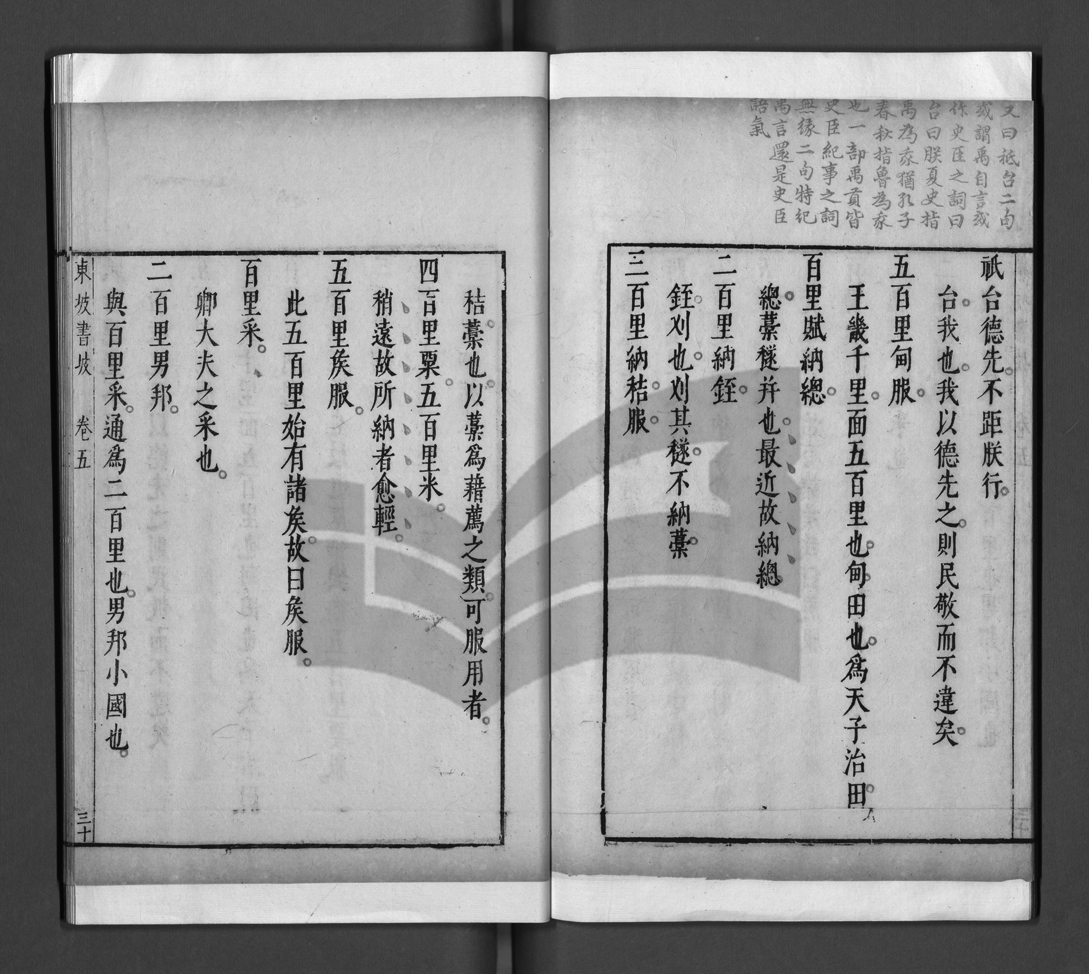 又曰祗台二句
或謂禹自言或
作史臣之詞曰
台曰朕夏史指
禹為我猶孔子
春秋指魯為我
也一部禹貢皆
史臣紀事之詞
無緣二句特紀
禹言還是史臣
語氣
祇台德先。不距朕行。
台我也。我以德先之。則民敬而不違矣。
五百里甸服。
王畿千里。面五百里也。甸。田也。爲天子治田。
百里賦納總。
總。藁穟幷也。最近故納總。
二百里納銍。
銍刈也。刈其穟。不納藁。
三百里納秸。服。
秸。藁也。以藁爲藉薦之類。可服用者。
四百里粟。五百里米。
稍遠故所納者愈輕。
五百里矦服。
此五百里始有諸矦。故曰矦服。
百里采。
卿大夫之采也。
二百里男邦。
與百里采。通爲二百里也。男邦小國也。
東坡書坡 卷五 三十